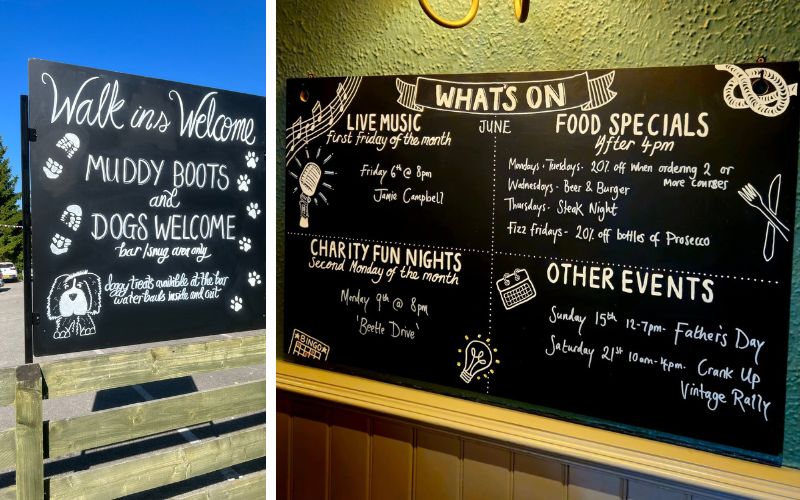 Walk ins Welcome
MUDDY BOOTS
and
DOGS WELCOME
bar/snug area only
doggy treats available at the bar
waterbowls inside and out
WHAT'S ON
JUNE
LIVE MUSIC
first friday of the month
Friday 6th @ 8pm
Jamie Campbell
FOOD SPECIALS
After 4pm
Mondays - Tuesdays - 20% off when ordering 2 or
more courses
Wednesdays - Beer & Burger
Thursdays - Steak Night
Fizz Fridays - 20% off bottles of Prosecco
CHARITY FUN NIGHTS
Second Monday of the month
Monday 9th @ 8pm
'Beetle Drive'
BINGO
OTHER EVENTS
Sunday 15th 12-7pm - Father's Day
Saturday 21st 10am-4pm - Crank Up
Vintage Rally